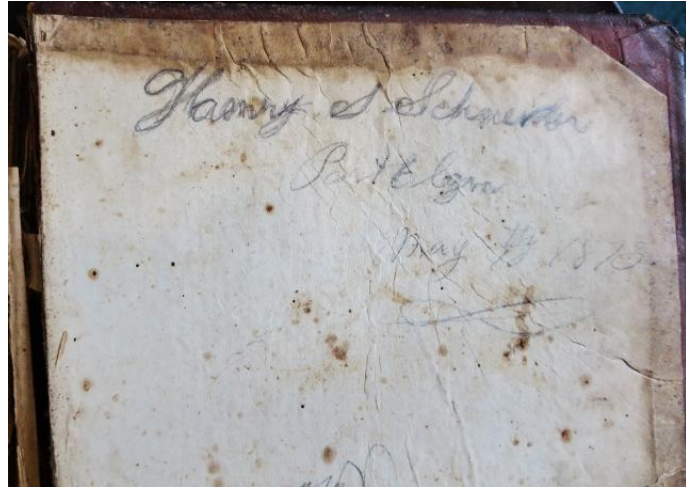 Hamry S. Schneider
Port Elgin
May 1893